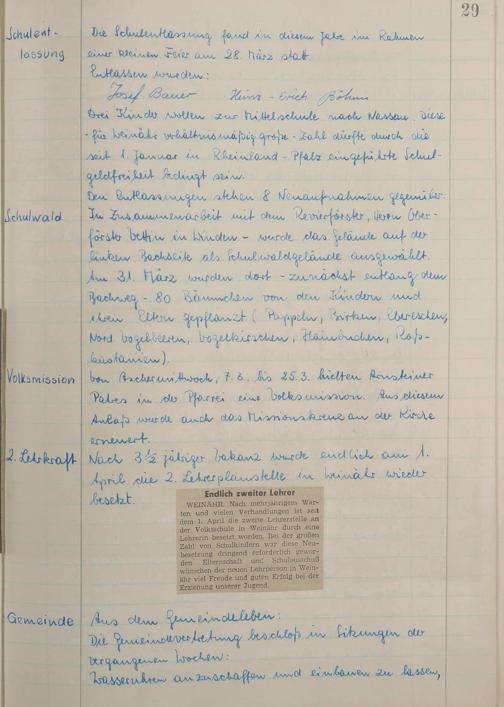 29
Schulent-
lassung
Die Schulentlassung fand in diesem Jahr im Rahmen
einer kleinen Feier am 28. März statt.
Entlassen wurden:
Josef Bauer Heinz-Erich Böhm
Drei Kinder wollen zur Mittelschule nach Nassau. Diese
- für Weinähr verhältnismäßig große - Zahl dürfte durch die
seit 1. Januar in Rheinland-Pfalz eingeführte Schul-
geldfreiheit bedingt sein.
Den Entlassungen stehen 8 Neuaufnahmen gegenüber.
Schulwald
In Zusammenarbeit mit dem Revierförster, Herrn Ober-
förster in Winden - wurde das Gelände auf der
linken Bachseite als Schulwaldgelände ausgewählt.
Am 31. März wurden dort - zunächst entlang dem
Bachweg - 80 Bäumchen von den Kindern und
ihren Eltern gepflanzt (Pappeln, Birken, Ebereschen,
Nord. Vogelbeeren, Vogelkirschen, Hainbuchen, Roß-
kastanien).
Volksmission
Von Aschermittwoch, 7.3. bis 25.3. hielten Arnsteiner
Patres in der Pfarrei eine Volksmission. Aus diesem
Anlaß wurde auch das Missionskreuz an der Kirche
erneuert.
2. Lehrkraft
Nach 3 1/2 jähriger Vakanz wurde endlich am 1.
April die 2. Lehrerplanstelle in Weinähr wieder
besetzt.
Endlich zweiter Lehrer
WEINÄHR. Nach mehrjährigem War-
ten und vielen Verhandlungen ist seit
dem 1. April die zweite Lehrerstelle an
der Volksschule in Weinähr durch eine
Lehrerin besetzt worden. Bei der großen
Zahl von Schulkindern war diese Neu-
besetzung dringend erforderlich gewor-
den. Elternschaft und Schulausschuß
wünschen der neuen Lehrperson in Wein-
ähr viel Freude und guten Erfolg bei der
Erziehung unserer Jugend.
Gemeinde
Aus dem Gemeindeleben:
Die Gemeindevertretung beschloß in Sitzungen der
vergangenen Wochen:
Wasseruhren anzuschaffen und einbauen zu lassen,